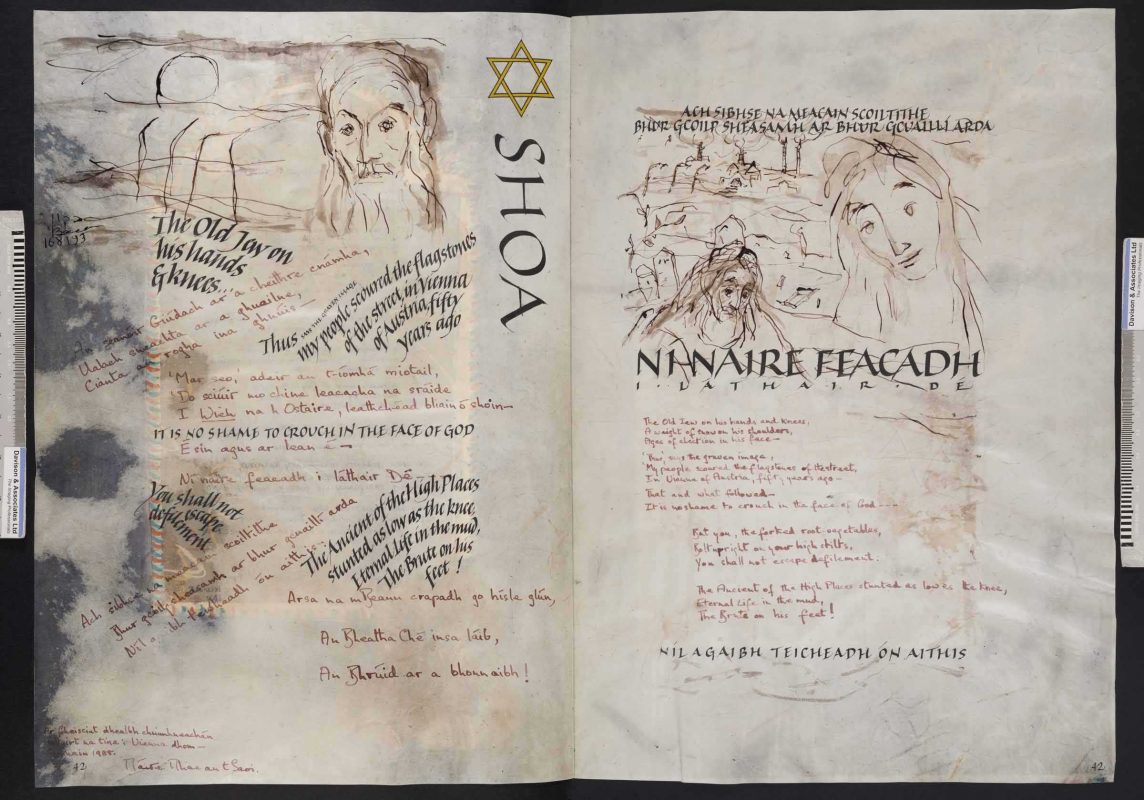 SHOA
The Old Jew on
his hands
& knees...
An seanóir Giúdach ar a cheithre cnámha,
Ualach sneachta ar a ghuailne,
Cianta an rogha ina ghnúis —
Thus SAYS THE GRAVEN IMAGE
my people scoured the flagstones
of the street, in Vienna
of Austria, fifty
years ago
'Mar seo,' adeir an t-íomhá miotail,
'Do sciúir mo chine leacacha na sráide
I Wien na h Ostaire, leathchéad bliain ó shoin—
IT IS NO SHAME TO CROUCH IN THE FACE OF GOD
É sin agus ar lean é —
Ní náire feacadh i láthair Dé
You shall not
escape
defilement
Ach sibhse na meacain scoiltithe
Bhur gcoilgsheasamh ar bhur gcuaillí arda
Níl agaibh teicheadh ón aithis
The Ancient of the High Places
stunted as low as the knee,
Eternal Life in the mud,
The Brute on his
feet !
Arsa na mBeann crapadh go hísle glún,
An Bheatha Ché insa láib,
An Bhrúid ar a bhonnaibh !
fheiscint dhealbh chuimhneacháin
na tine i Vienna dhom —
1988.
Máire Mhac an tSaoi.
42
ACH SIBHSE NA MEACAIN SCOILTITHE
BHUR GCOILG SHEASAMH AR BHUR GCUAILLI ARDA
NI NAIRE FEACADH
I · LÁTHAIR · DÉ
The Old Jew on his hands and knees,
A weight of snow on his shoulders,
Ages of election in his face —
'Thus', says the graven image,
'My people scoured the flagstones of the street,
In Vienna of Austria, fifty years ago —
That and what followed —
It is no shame to crouch in the face of God ---
But you, the forked root-vegetables,
Bolt upright on your high stilts,
You shall not escape defilement.
The Ancient of the High Places stunted as low as the knee,
Eternal Life in the mud,
The Brute on his feet!
NÍL AGAIBH TEICHEADH ÓN AITHIS
42
Davison & Associates Ltd
Davison & Associates Ltd